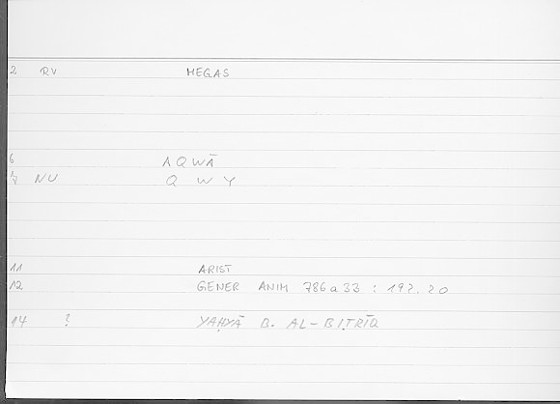 2 RV MEGAS
6 AQWĀ
7 NU Q W Y
11 ARIST
12 GENER ANIM 786a33 : 192.20
14 ? YAḤYĀ B. AL-BIṬRĪQ